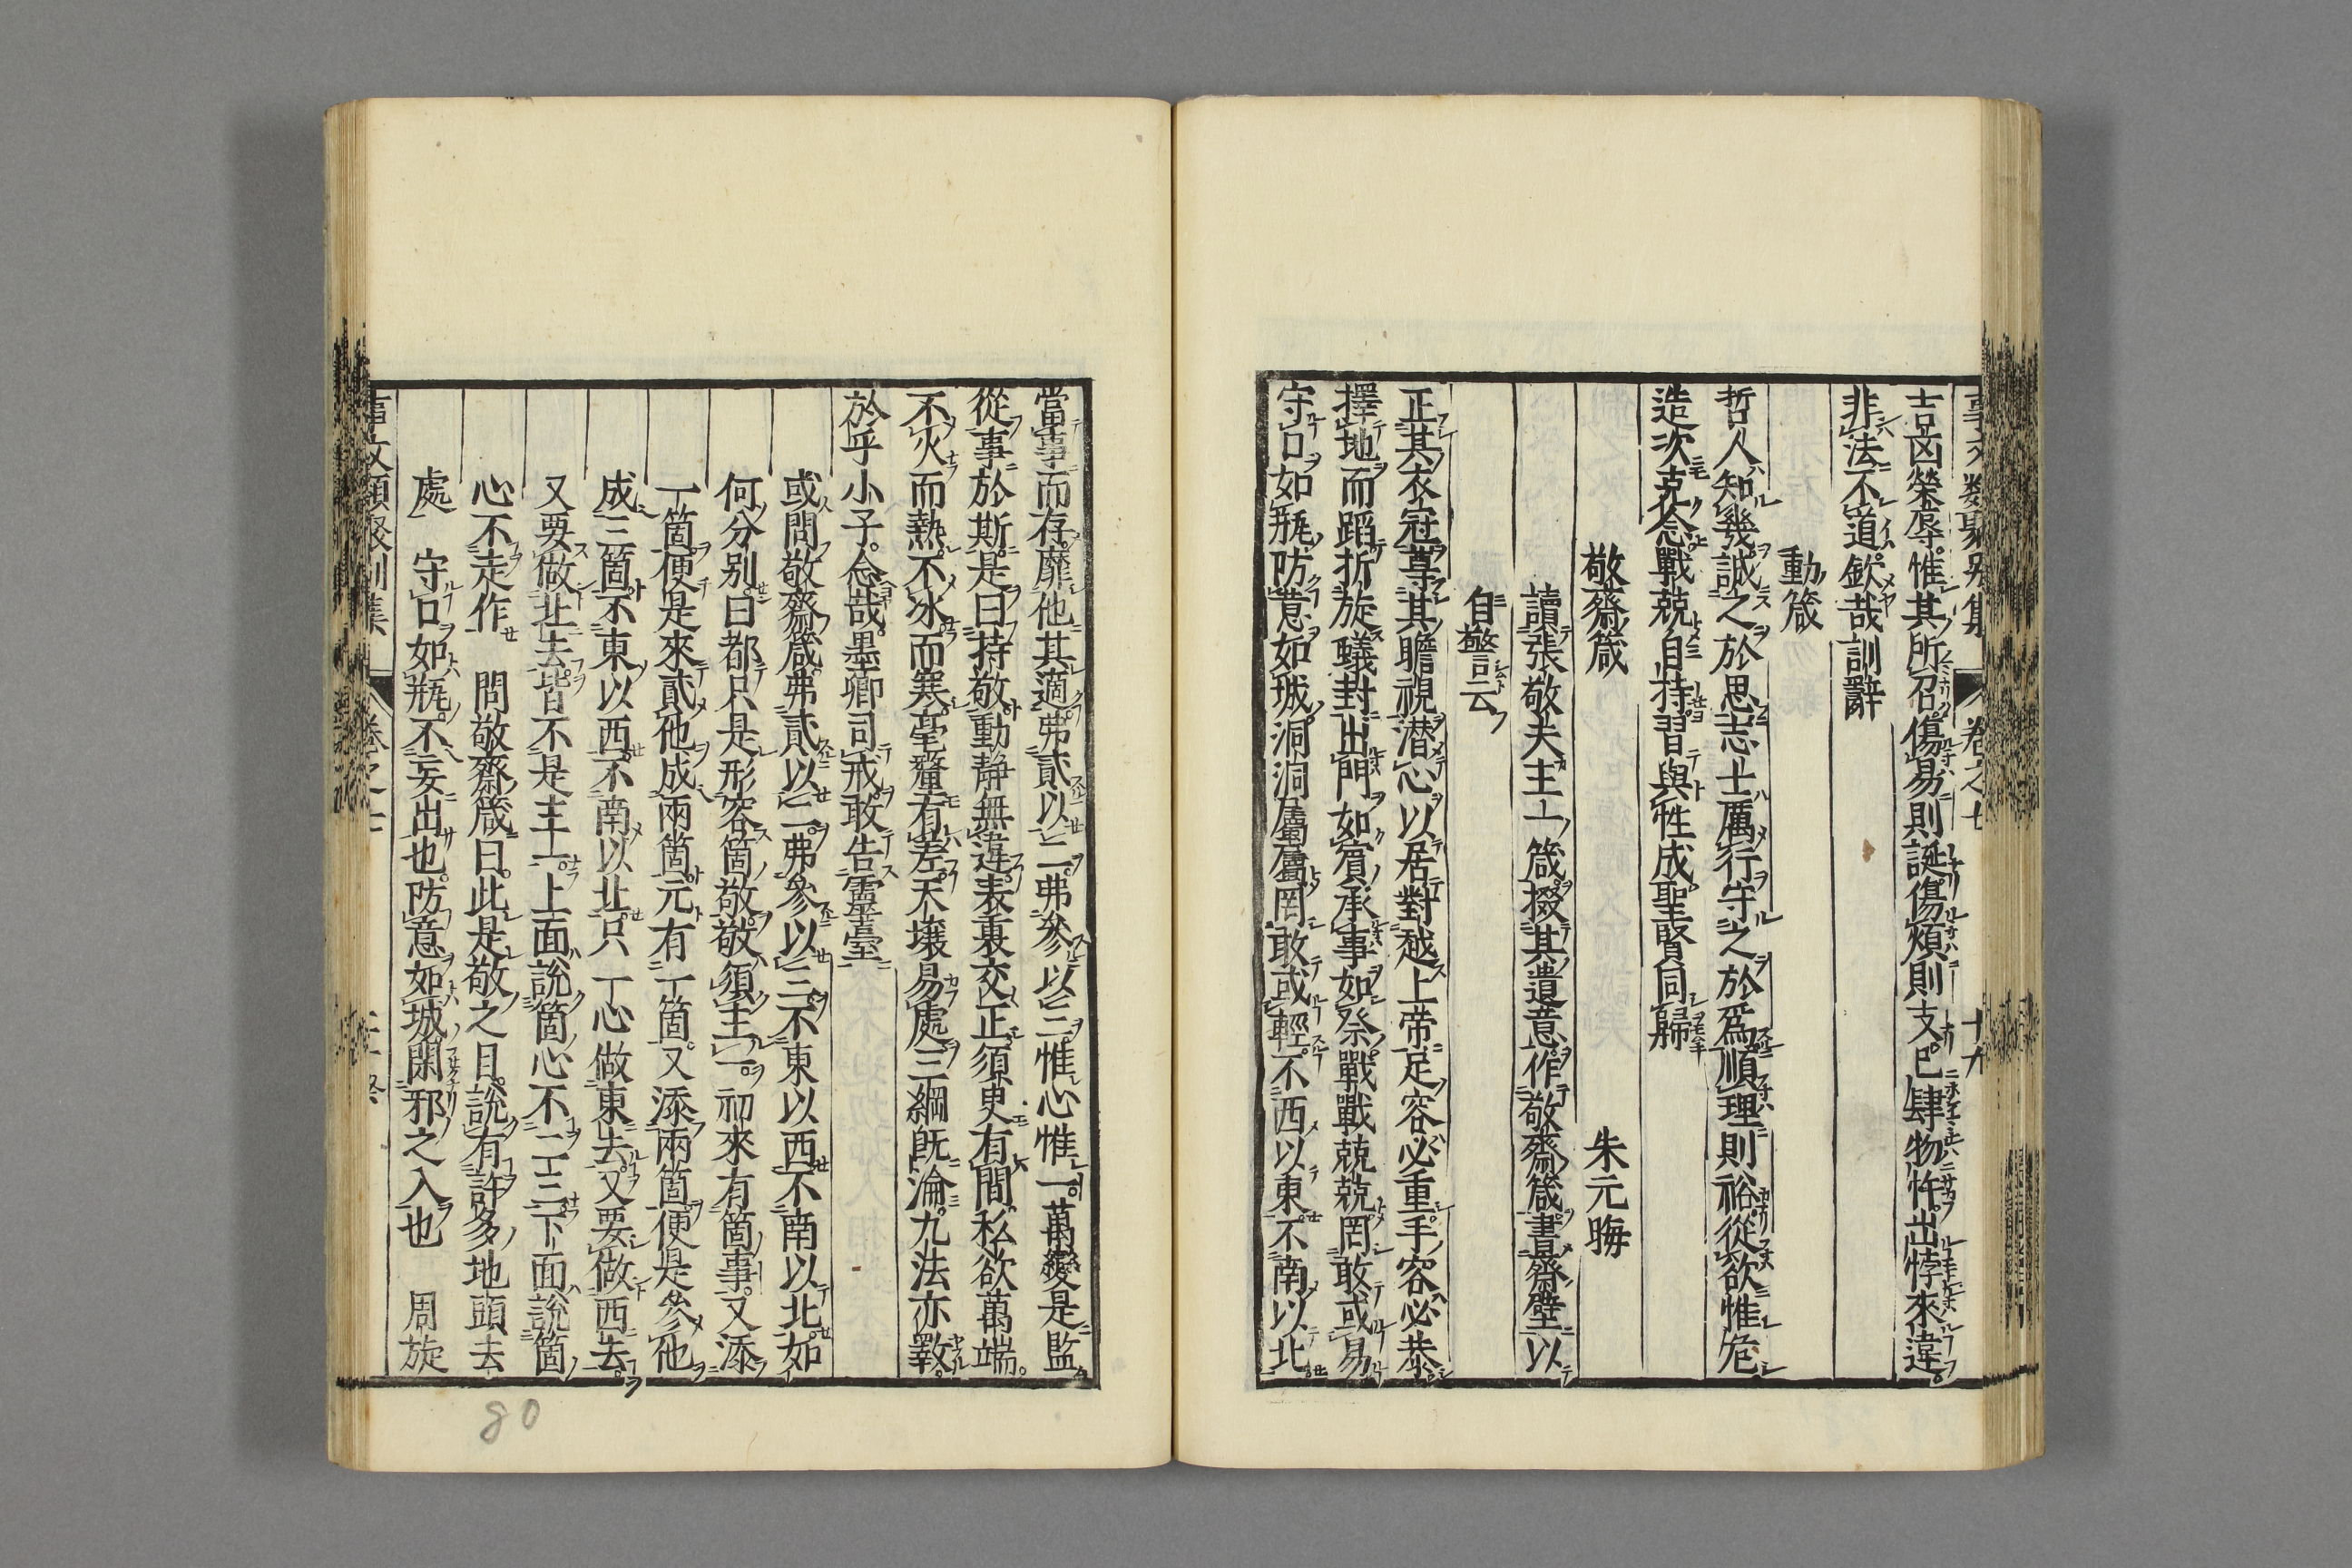 吉凶榮辱惟其所召傷易則誕傷煩則支已肆物忤出悖來違
非法不道欽哉訓辭
動箴
哲人知幾誠之於思志士厲行守之於爲順理則裕從欲惟危
造次克念戰兢自持習與性成聖賢同歸
敬齋箴 朱元晦
讀張敬夫主一箴掇其遺意作敬齋箴書齋壁以
自警云
正其衣冠尊其瞻視潜心以居對越上帝足容必重手容必恭
擇地而蹈折旋蟻封出門如賓承事如祭戰戰兢兢罔敢或易
守口如瓶防意如城洞洞屬屬罔敢或輕不西以東不南以北
當事而存靡他其適弗貳以二弗參以三惟心惟一萬變是監
從事於斯是曰持敬動静無違表裏交正須臾有間私欲萬端
不火而熱不冰而寒毫釐有差天壤易處三綱既淪九法亦斁
於乎小子念哉墨卿司戒敢告靈臺
或問敬齋箴弗貳以二弗參以三不東以西不南以北如
何分别曰都只是形容箇敬敬須主一初來有箇事又添
一箇便是來貳他成兩箇元有一箇又添兩箇便是參他
成三箇不東以西不南以北只一心做東去又要做西去
又要做北去皆不是主一上面說箇心不二三下面說箇
心不走作 問敬齋箴曰此是敬之目說有許多地頭去
處 守口如瓶不妄出也防意如城閑邪之入也 周旋